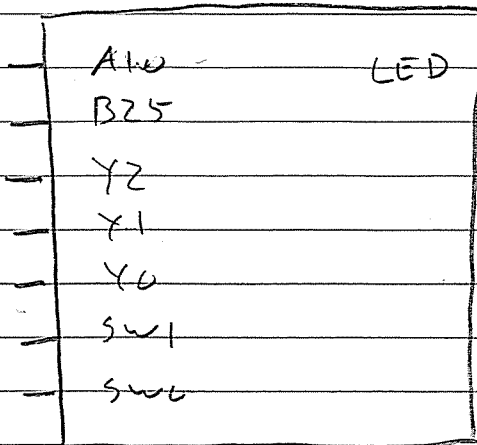 A10 LED
B25
Y2
Y1
Y0
SW1
SW0